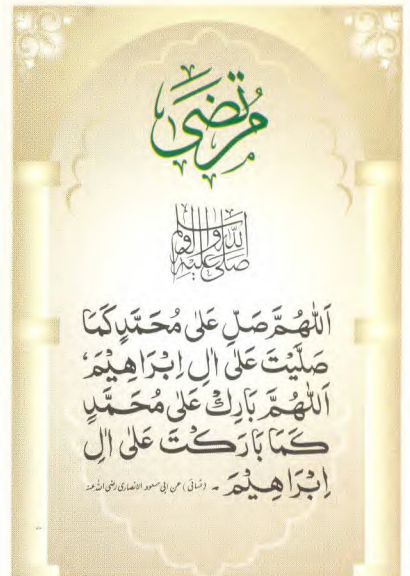 مُرتَضَى
صلی اللہ علیہ والہ وسلم
اَللّٰهُمَّ صَلِّ عَلٰى مُحَمَّدٍ كَمَا
صَلَّيْتَ عَلٰى اٰلِ اِبْرَاهِيْمَ،
اَللّٰهُمَّ بَارِكْ عَلٰى مُحَمَّدٍ
كَمَا بَارَكْتَ عَلٰى اٰلِ
اِبْرَاهِيْمَ ۔ (نسائی) عن ابی مسعود الانصاری رضی اللہ عنہ